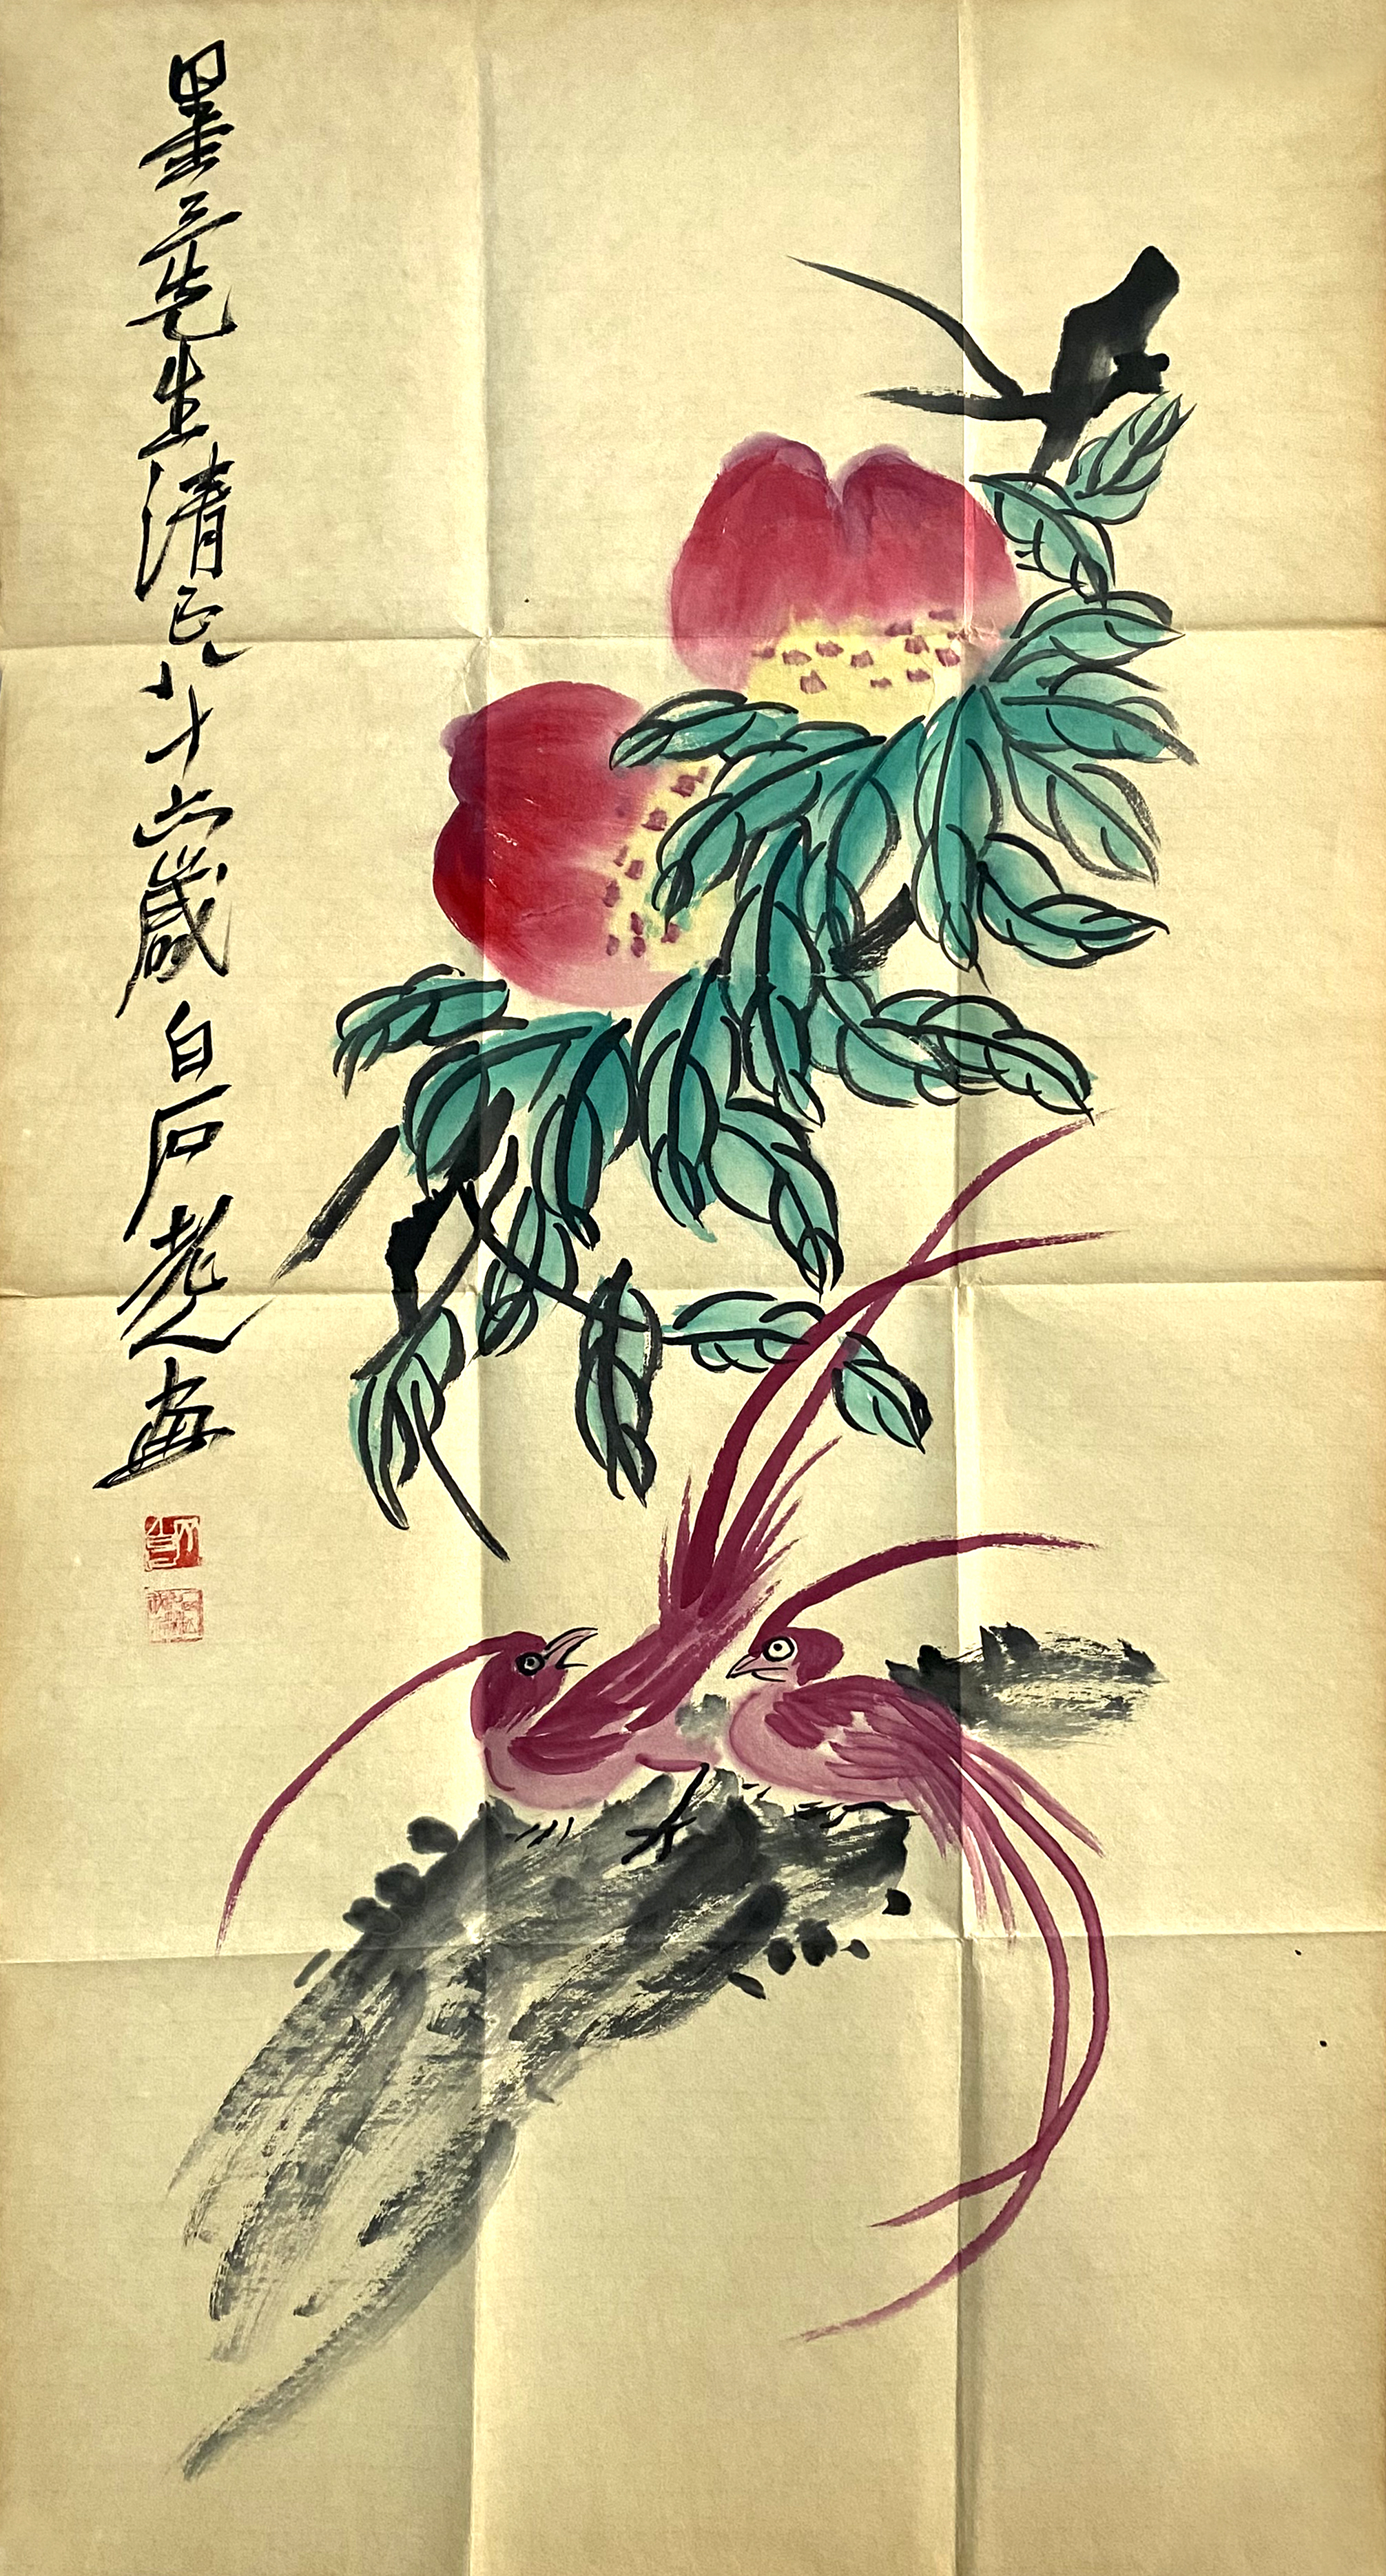 墨三先生清正八十六歲白石老人畫